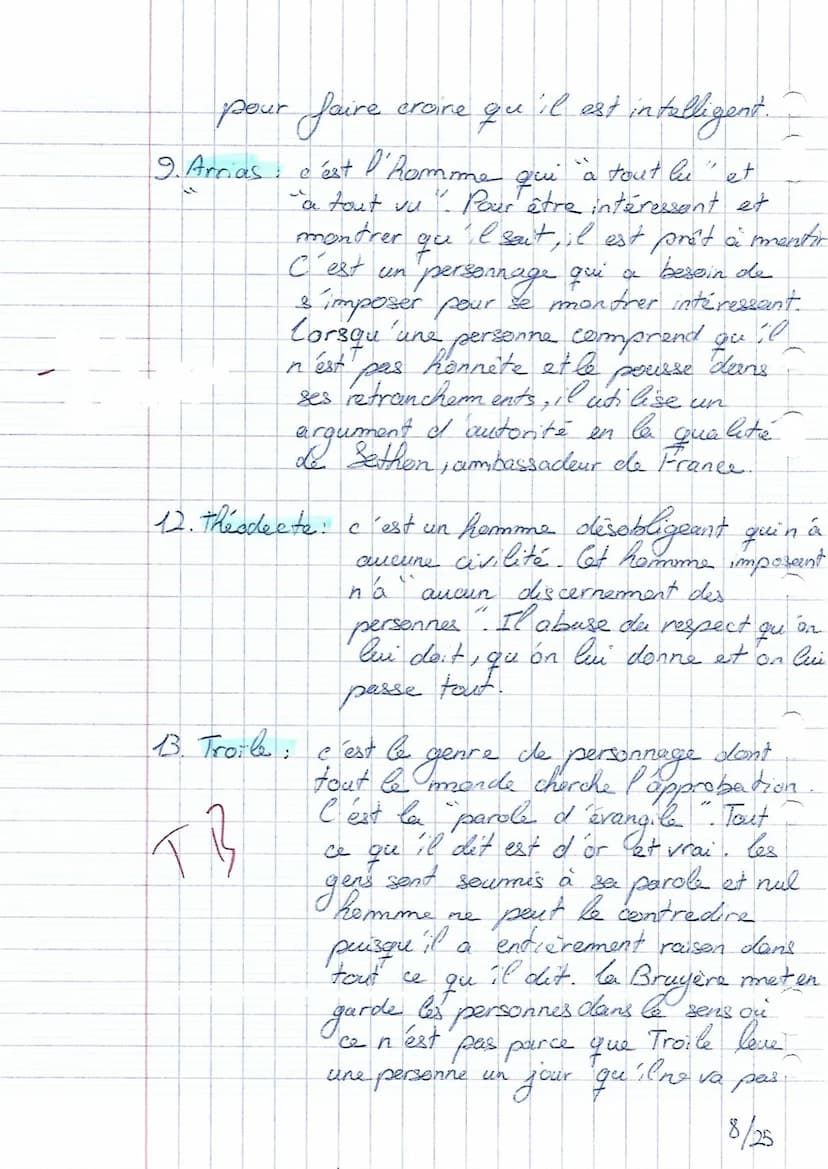 pour faire croire qu'il est intelligent.
9. Arrias : c'est l'homme qui "a tout lu" et
"a tout vu". Pour être intéressant et
montrer qu'il sait, il est prêt à mentir
C'est un personnage qui a besoin de
s'imposer pour se montrer intéressant.
Lorsqu'une personne comprend qu'il
n'est pas honnête et le pousse dans
ses retranchements, il utilise un
argument d'autorité en la qualité
de Sethon, ambassadeur de France.
12. Théodecte : c'est un homme désobligeant qui n'a
aucune civilité. Cet homme imposant
n'a "aucun discernement des
personnes". Il abuse du respect qu'on
lui doit, qu'on lui donne et on lui
passe tout.
13. Troïle : c'est le genre de personnage dont
tout le monde cherche l'approbation.
C'est la "parole d'évangile". Tout
ce qu'il dit est d'or et vrai. Les
gens sont soumis à sa parole et nul
homme ne peut le contredire
puisqu'il a entièrement raison dans
tout ce qu'il dit. La Bruyère met en
garde les personnes dans le sens où
TB
ce n'est pas parce que Troïle loue
une personne un jour qu'il ne va pas
8/25